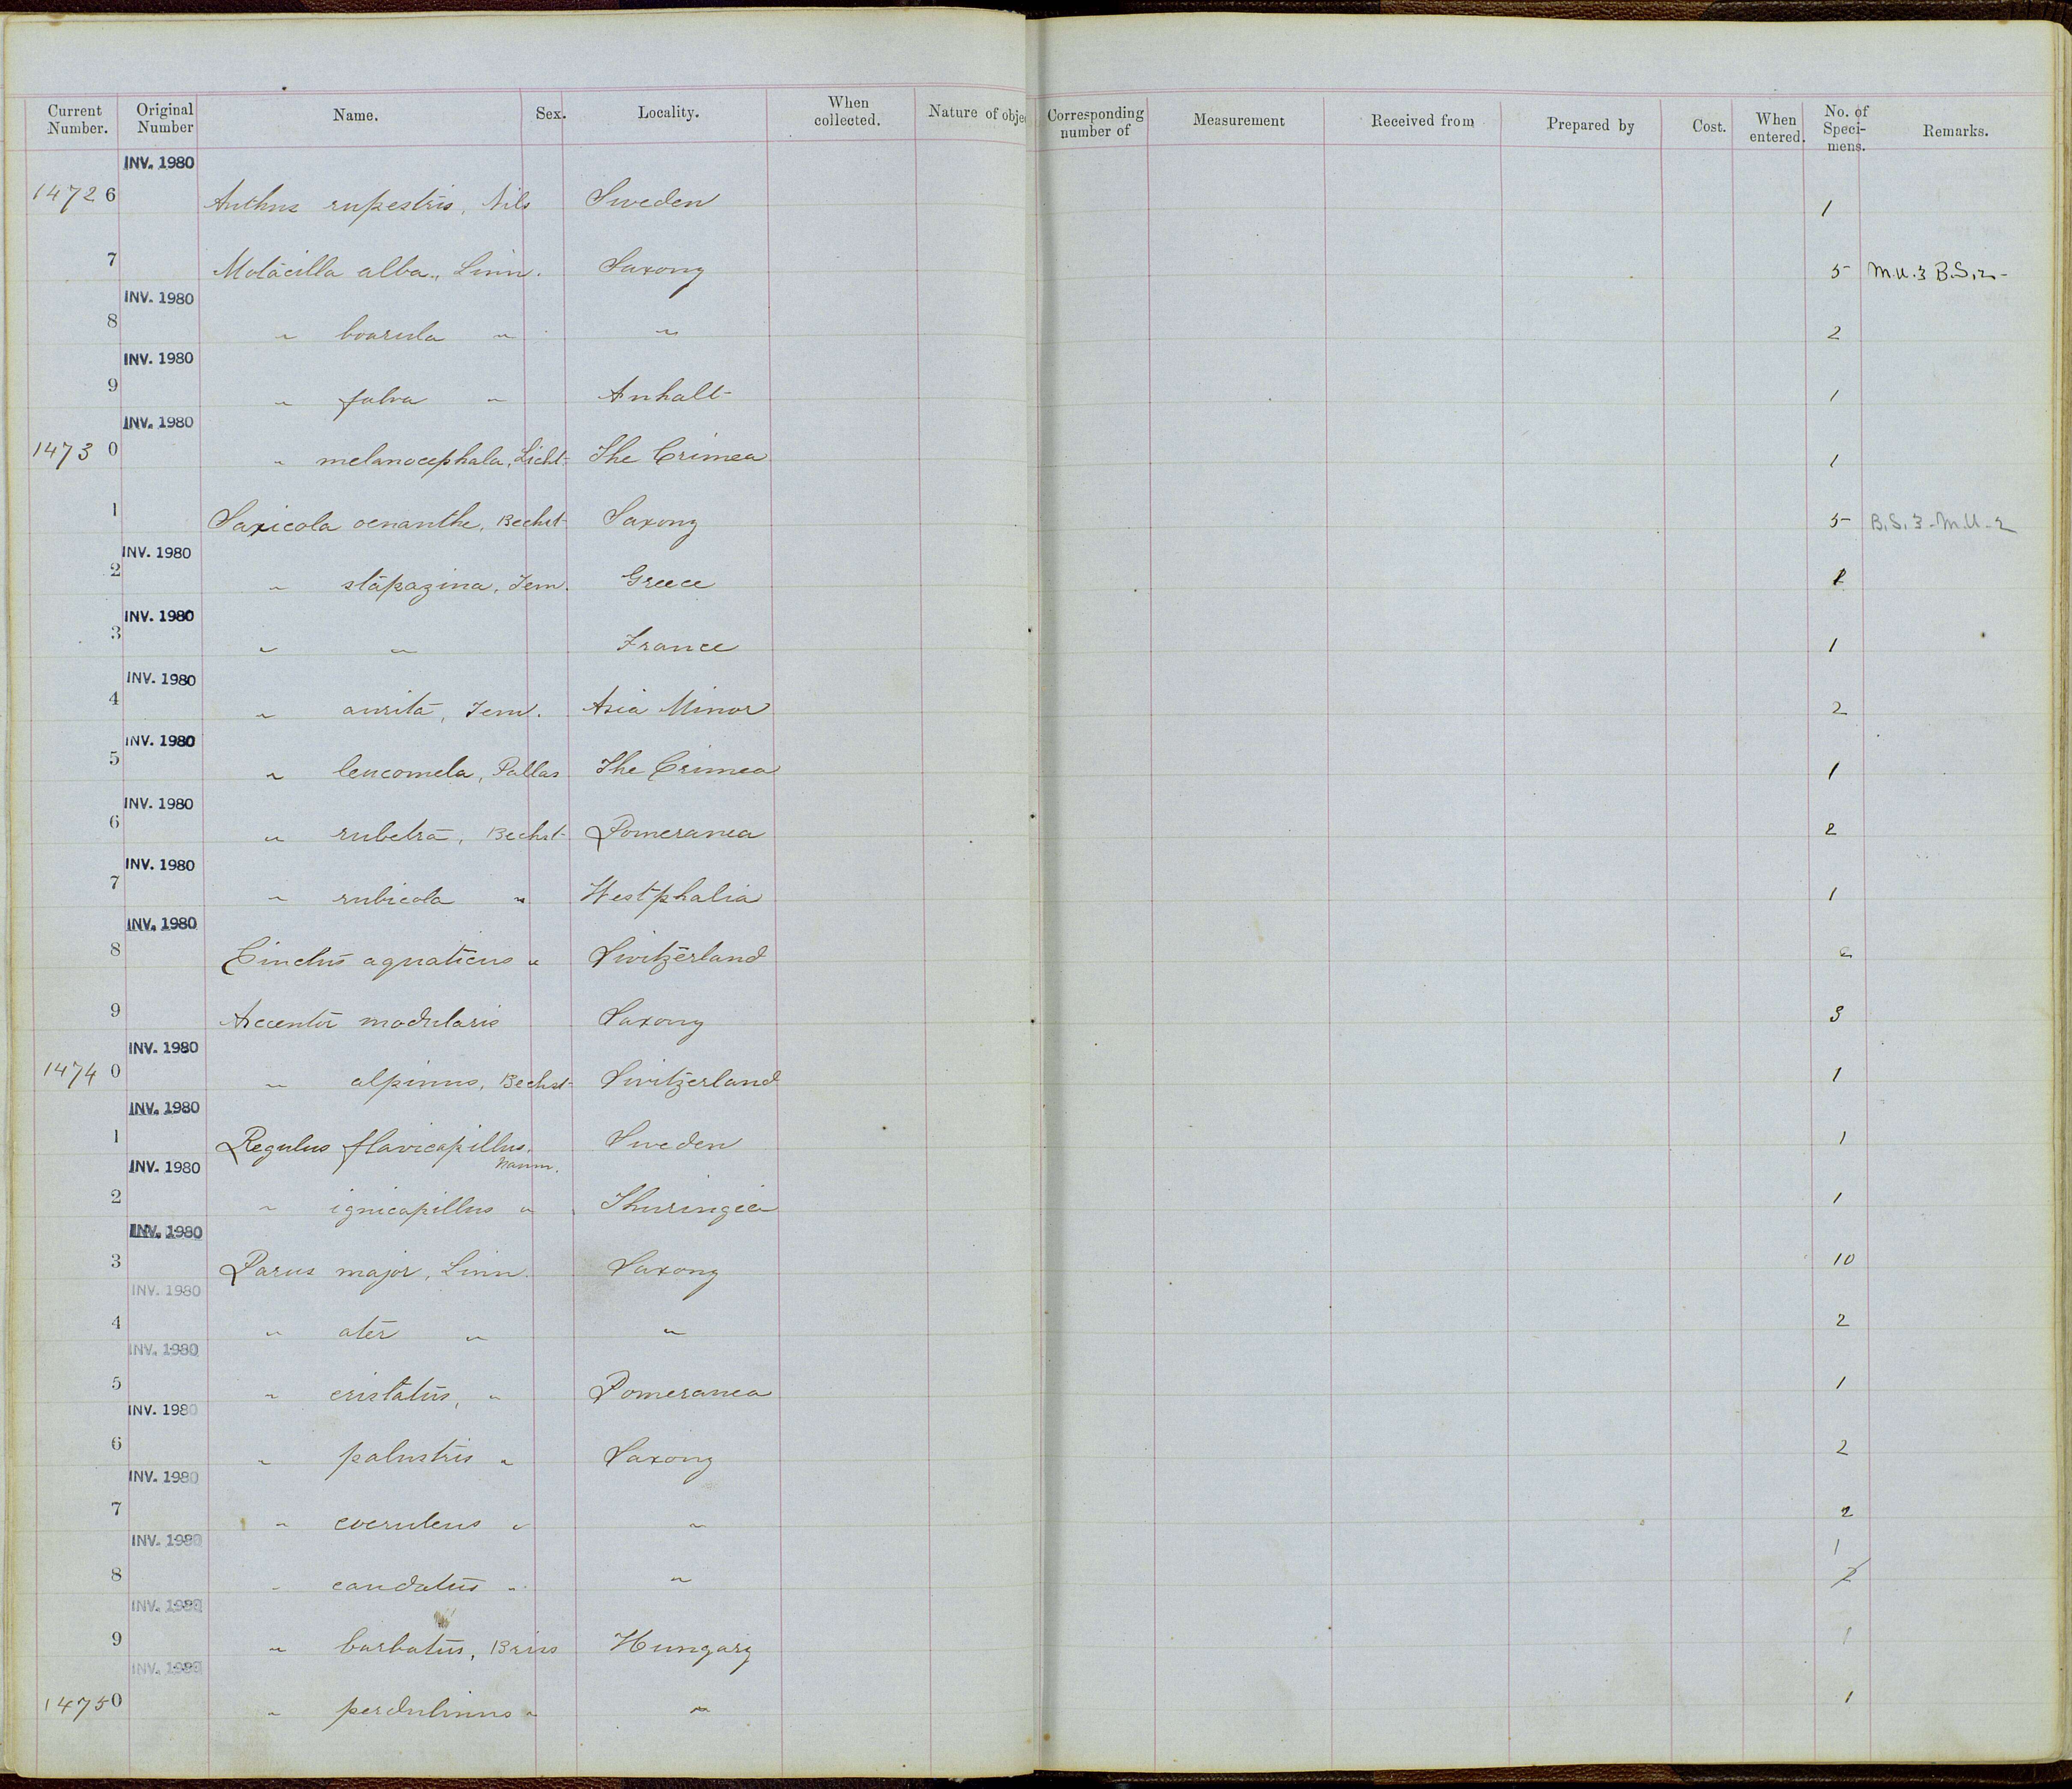 Current Number. Original Number Name. Sex. Locality. When collected. Nature of obje Corresponding number of Measurement Received from Prepared by Cost. When entered. No. of Speci-mens. Remarks.
INV. 1980
14726 Anthus rupestris, Nils Sweden 1
7 Motacilla alba, Linn. Saxony 5 M.U.3 B.S.2-
INV. 1980
8 " boarula " " 2
INV. 1980
9 " fulva " Anhalt 1
INV. 1980
14730 " melanocephala, Licht. The Crimea 1
1 Saxicola oenanthe, Bechst Saxony 5 B.S.3-M.U-2
INV. 1980
2 " stapazina, Tem. Greece
INV. 1980
3 " " France 1
INV. 1980
4 " aurita, Tem. Asia Minor 2
INV. 1980
5 " leucomela, Pallas The Crimea 1
INV. 1980
6 " rubetra, Bechst Pomerania 2
INV. 1980
7 " rubicola " Westphalia 1
INV. 1980
8 Cinclus aquaticus " Switzerland
9 Accentor modularis Saxony 3
INV. 1980
14740 " alpinus, Bechst Switzerland 1
INV. 1980
1 Regulus flavicapillus, Naum. Sweden 1
INV. 1980
2 " ignicapillus " Thuringia 1
INV. 1980
3 Parus major, Linn. Saxony 10
INV. 1980
4 " ater " " 2
INV. 1980
5 " cristatus, " Pomerania 1
INV. 1980
6 " palustris " Saxony 2
INV. 1980
7 " coeruleus " " 2
INV. 1980
8 " caudatus " " 1 2
INV. 1980
9 " barbatus, Briss Hungary 1
INV. 1980
14750 " pendulinus " " 1